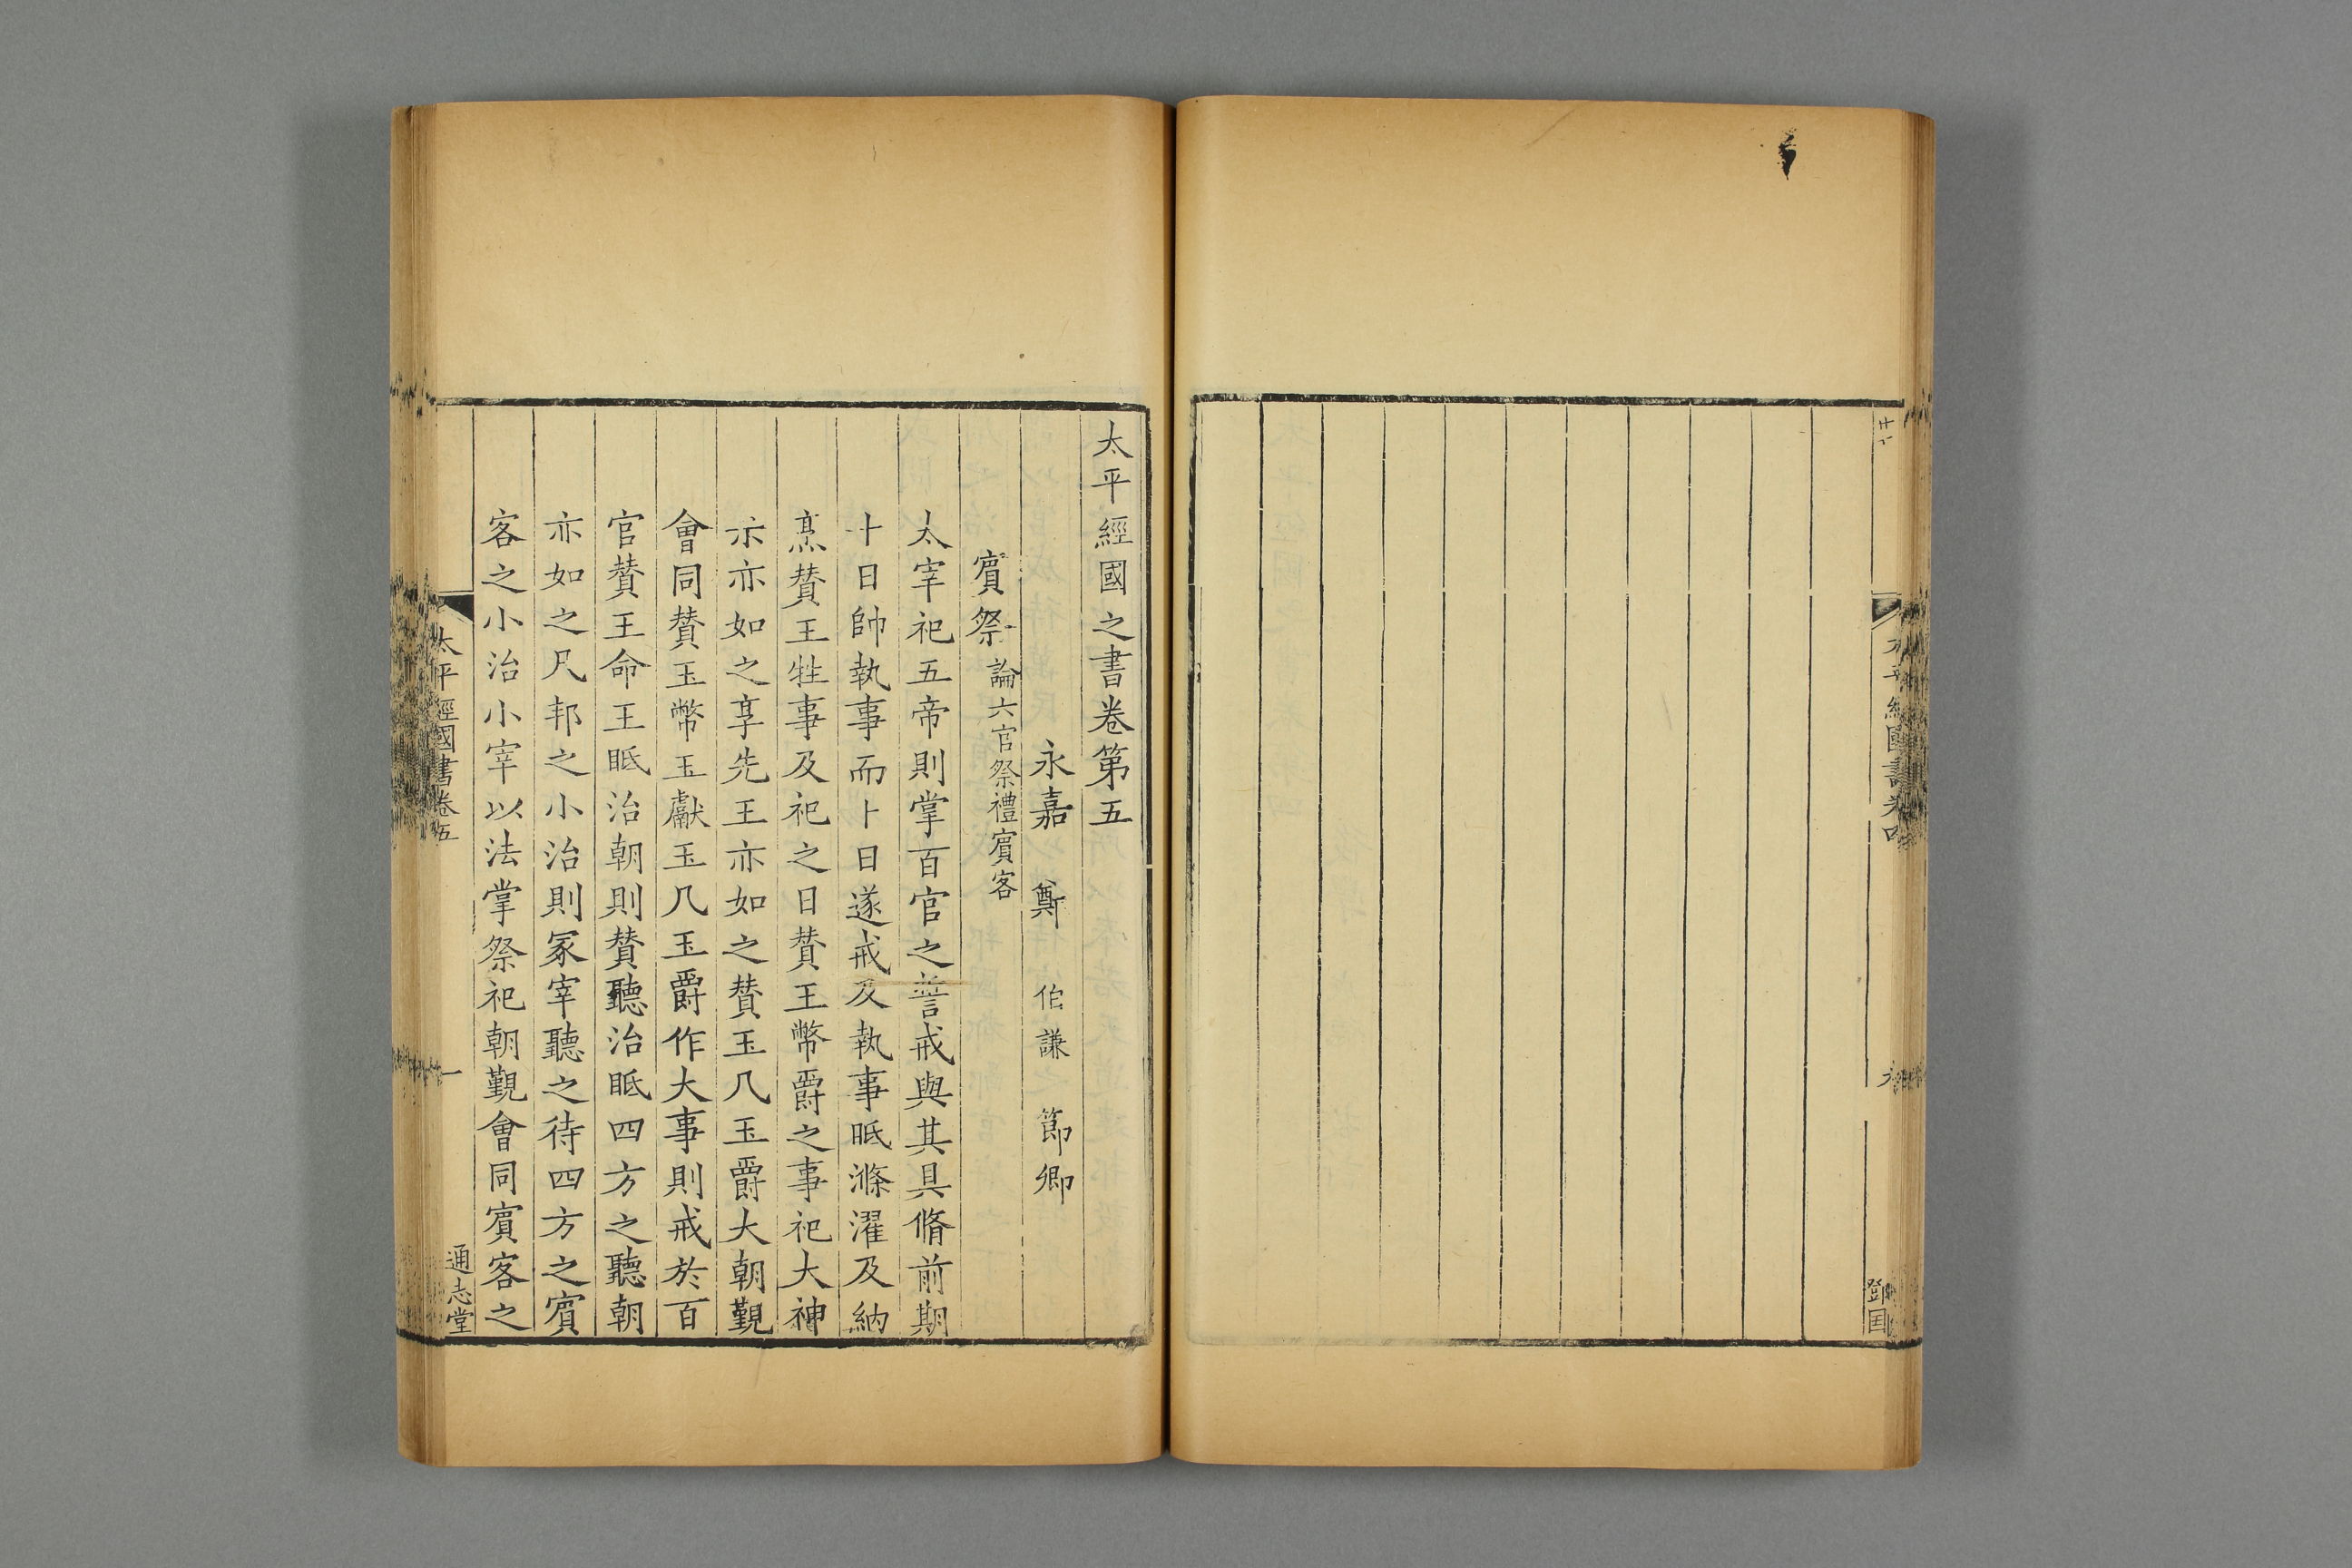 太平經國書卷四
鄧国
太平經國之書卷第五
永嘉 鄭 伯謙 節卿
賔祭 論六官祭禮賔客
太宰祀五帝則掌百官之誓戒與其具脩前期
十日帥執事而卜日遂戒及執事眡滌濯及納
亯贊王牲事及祀之日贊王幣爵之事祀大神
示亦如之享先王亦如之贊玉几玉爵大朝覲
會同贊玉幣玉獻玉几玉爵作大事則戒於百
官贊王命王眡治朝則贊聽治眡四方之聽朝
亦如之凡邦之小治則冢宰聽之待四方之賔
客之小治小宰以法掌祭祀朝覲會同賔客之
太平經國書卷五
一
通志堂